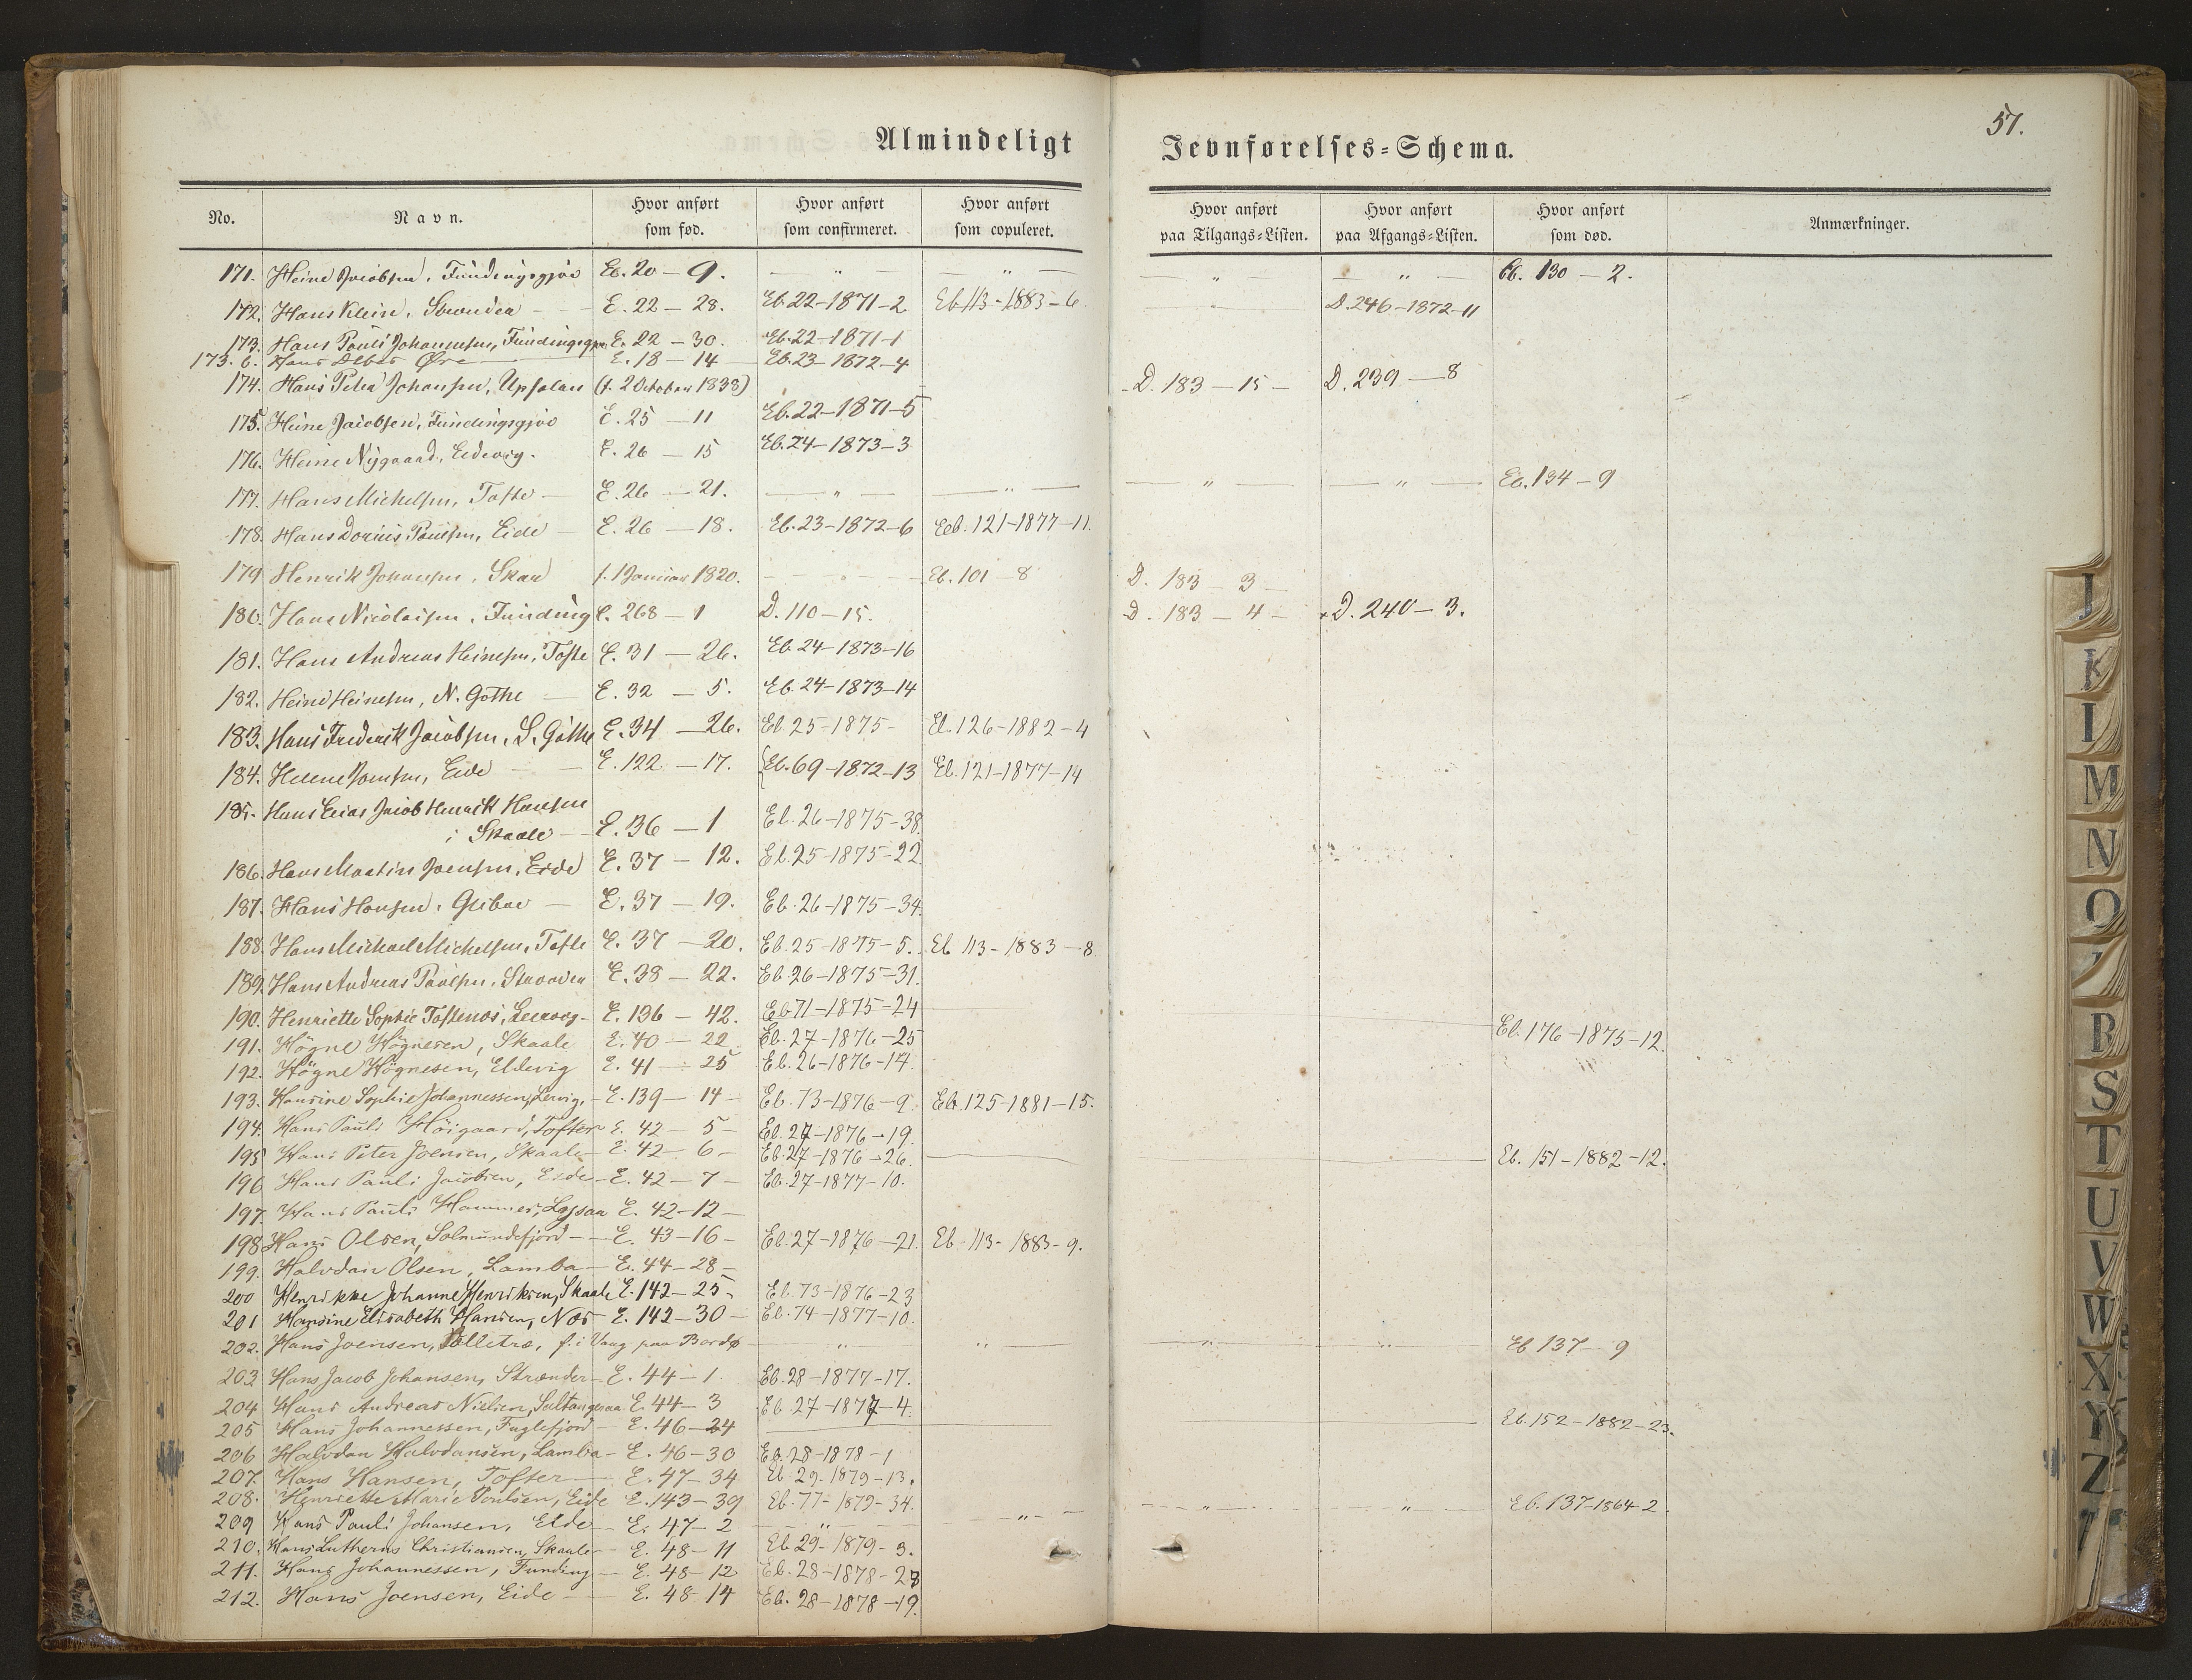 57.
Almindeligt Jevnførelses-Schema.
No. Navn. Hvor anført som fød. Hvor anført som confirmeret. Hvor anført som copuleret. Hvor anført paa Tilgangs-Listen. Hvor anført paa Afgangs-Listen. Hvor anført som død. Anmærkninger.
171. Heine Jacobsen, Fundingsgjov Eb. 20 — 9. — " — — " — — " — — " — Eb. 130 — 2.
172. Hans Klein, E. 22 — 28. Eb. 22-1871-2 Eb 113-1883-6. — " — D. 246-1872-11
173. Hans Pauli Johannesen, E. 22 — 30. Eb. 22-1871-1
173. b. Hans Øre E. 18 — 14 Eb. 23-1872-4
174. Hans Peter Johansen, (f. 2 October 1838) D. 183 — 15 — D. 239 — 8
175. Heine Jacobsen, Fundingsgjov E. 25 — 11 Eb. 22-1871-5
176. Heine Nygaard, Eldevig. E. 26 — 15 Eb. 24-1873-3
177. Hans Michelsen, Tofte — E. 26 — 21. — " — — " — — " — — " — Eb. 134 — 9
178. Hans Dorius Poulsen, Eide — E. 26 — 18. Eb. 23-1872-6 Eb. 121-1877-11.
179 Henrik Johansen, f. 1 Januar 1820. — " — Eb. 101 — 8 D. 183 — 3 —
180. Hans Nicolaisen, Funding E. 268 — 1 D. 110 — 15. D. 183 — 4 — D. 240 — 3.
181. Hans Andreas Heinesen, Tofte E. 31 — 26. Eb. 24-1873-16
182. Heine Heinesen, N. Gøthe — E. 32 — 5. Eb. 24-1873-14
183. Hans Frederik Jacobsen, S. Gøthe E. 34 — 26. Eb. 25-1875- Eb. 126-1882-4
184. Helene Joensen, Eide — E. 122 — 17. Eb. 69-1872-13 Eb. 121-1877-14
185. Hans Jacob Henrik Hansen
i Skaale — E. 36 — 1 Eb. 26-1875-38.
186. Hans Martin Joensen, Eide E. 37 — 12. Eb. 25-1875-22
187. Hans Hansen, E. 37 — 19. Eb. 26-1875-34.
188. Hans Michael Michelsen, Tofte E. 37 — 20. Eb. 25-1875-5. Eb 113-1883-8
189. Hans Andreas Poulsen, E. 38 — 22. Eb. 26-1875-31.
190. Henriette Sophie E. 136 — 42. Eb 71-1875-24
191. Högne Högnesen, Skaale E. 40 — 22 Eb. 27-1876-25 Eb. 176-1875-12.
192. Högne Högnesen, Eldevig E. 41 — 25 Eb. 26-1876-14.
193. Hansine Sophie Johannessen, Lervig, E. 139 — 14 — Eb. 73-1876-9. Eb. 125-1881-15.
194. Hans Pauli Höigaard, Tofter E. 42 — 5 — Eb. 27-1876-19.
195 Hans Peter Joensen, Skaale E. 42 — 6 — Eb. 27-1876-26. Eb. 151-1882-12.
196 Hans Pauli Jacobsen, Eide — E. 42 — 7 — Eb. 27-1877-10.
197. Hans Pauli Hammer, E. 42-12 —
198. Hans Olsen, Solmundefjord — E. 43-16 — Eb. 27-1876-21. Eb. 113-1883-9.
199. Halvdan Olsen, Lamba — E. 44-28 —
200 Henrikke Johanne Henriksen, Skaale E. 142-25 — Eb. 73-1876-23
201 Hansine Elisabeth Hansen, Næs E. 142-30 — Eb. 74-1877-10.
202. Hans Joensen, f. i Vaag paa Bordø — " — " — — " — — " — Eb 137 — 9
203 Hans Jacob Johansen, Strænder — E. 44 — 1. Eb. 28-1877-17.
204 Hans Andreas Nielsen, E. 44 — 3 Eb. 27-1877-4.
205 Hans Johannessen, Fuglefjord — E. 46-24 Eb. 152-1882-23.
206 Halvdan Halvdansen, Lamba — E. 46-30 Eb. 28-1878-1
207. Hans Hansen, Tofter — E. 47-34 Eb. 29-1879-13.
208. Henriette Marie Poulsen, Eide E. 143-39 Eb. 77-1879-34.
209 Hans Pauli Johansen, Elde — E. 47-2 — " — — " — — " — — " — Eb. 137-1864-2.
210. Hans Lutherus Christiansen, Skaale — E. 48-11 Eb 29-1879-3.
211. Hans Johannessen, Funding — E. 48-12 Eb. 28-1878-28
212. Hans Joensen, Eide — E. 48-14 Eb. 28-1878-19.
J
K
L
M
N
O
R
S
T
U
V
W
X
Y
Z